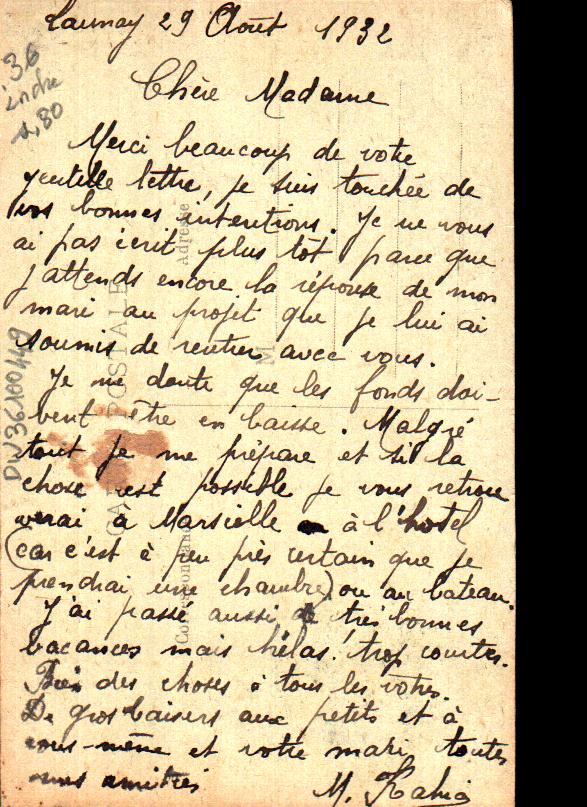 Launay 29 Aout 1932
36
indre
1,80
Chère Madame
Merci beaucoup de votre
gentille lettre, je suis touchée de
vos bonnes intentions. Je ne vous
ai pas écrit plus tôt parce que
j'attends encore la réponse de mon
mari au projet que je lui ai
soumis de rentrer avec vous.
Je me doute que les fonds doi-
vent être en baisse. Malgré
tout je me prépare et si la
chose est possible je vous retrou
verai à Marsielle à l'hotel
(car c'est à peu près certain que je
prendrai une chambre) ou au bateau.
J'ai passé aussi de très bonnes
vacances mais hélas! trop courtes.
Bien des choses à tous les vôtres.
De gros baisers aux petits et à
vous-même et votre mari toutes
mes amitiés
M.
CARTE POSTALE
Correspondance
Adresse
M
DW36180449